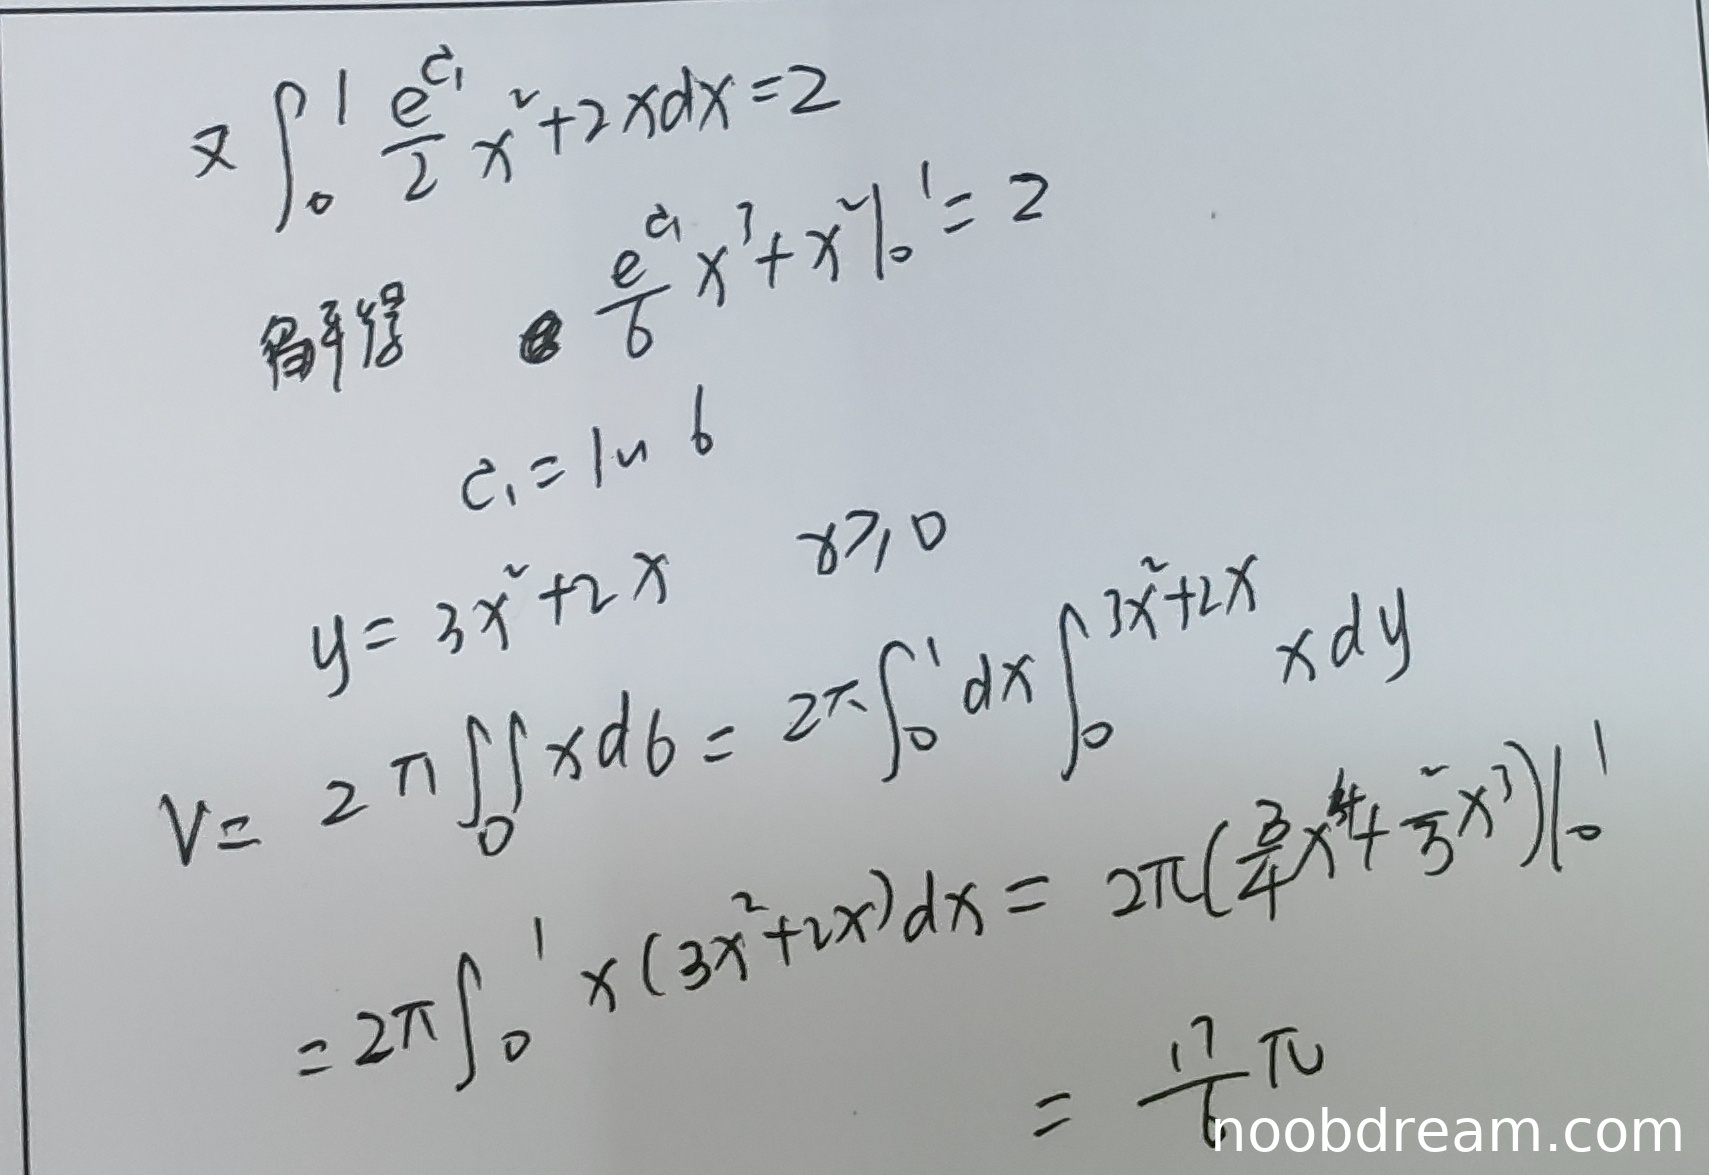 又 ∫₀¹ e^{c₁}/2 x² + 2x dx = 2
解得 e^{c₁}/6 x³ + x² |₀¹ = 2
c₁ = ln 6
y = 3x² + 2x x ≥ 0
V = 2π ∬_D x dσ = 2π ∫₀¹ dx ∫₀^{3x²+2x} x dy
= 2π ∫₀¹ x(3x² + 2x) dx = 2π(3/4 x⁴ + 2/3 x³)|₀¹
= 17/6 π
noobdream.com